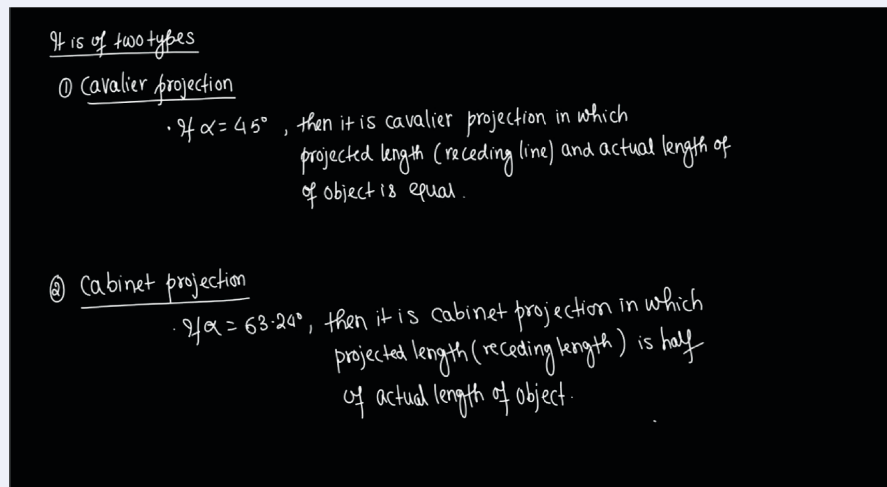 It is of two types
① Cavalier projection
· If α = 45° , then it is cavalier projection in which
projected length (receding line) and actual length of
of object is equal .
② Cabinet projection
· If α = 63.24° , then it is cabinet projection in which
projected length (receding length) is half
of actual length of object .